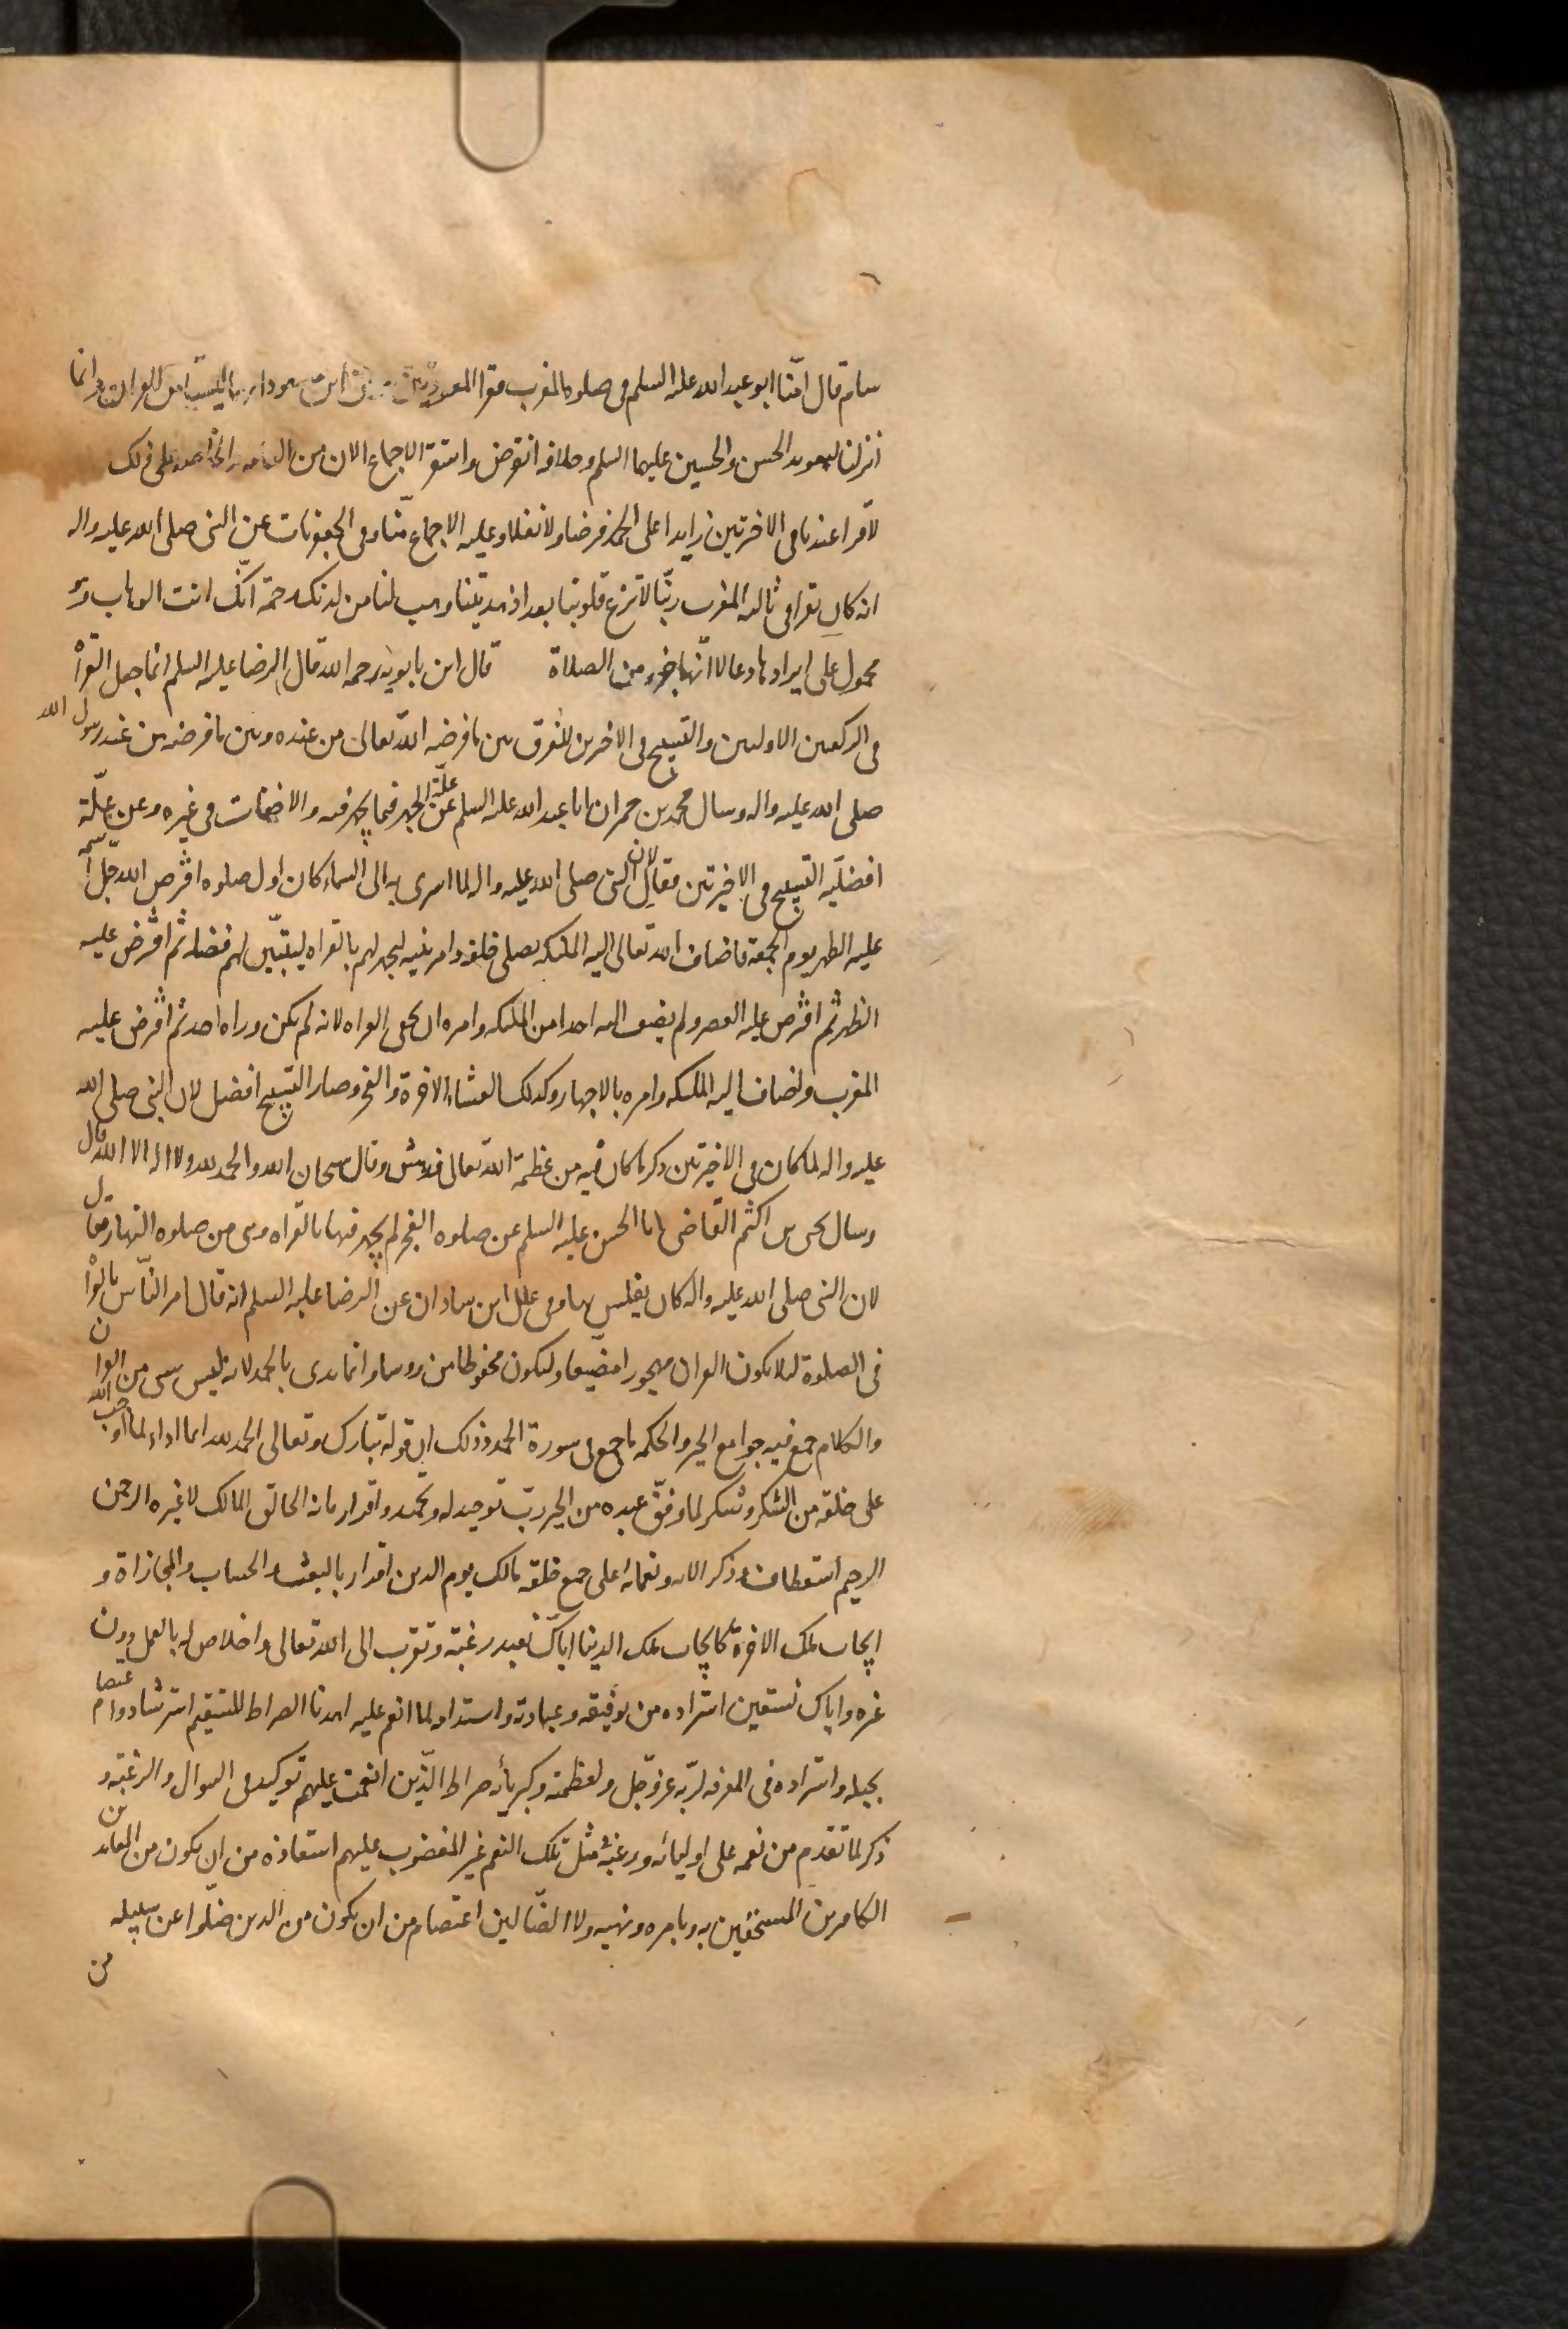 سام قال امّنا ابو عبد الله عليه السلم فى صلوة المغرب فقرا المعوذتين ابن مسعود انهما ليستا من القران وانما
انزلتا لتعويذ الحسن والحسين عليهما السلم وخلافه انقرض واستقر الاجماع الان من العامه والخاصه على ذلك
لا تقرا عندنا فى الاخرتين زايدا على الحمد فرضا ولا نفلا وعليه الاجماع منّا وفى الجعفريات عن النبى صلى الله عليه واله
انه كان يقرا فى ثالثه المغرب ربّنا لا تزغ قلوبنا بعد اذ هديتنا وهب لنا من لدنك رحمة انّك انت الوهاب وهو
محمول على ايرادها دعا لا انّها جزء من الصلاة قال ابن بابويه رحمه الله قال الرضا عليه السلم انما جعل القراة
فى الركعتين الاوليين والتسبيح فى الاخرتين للفرق بين ما فرضه الله تعالى من عنده وبين ما فرضه من عند رسول الله
صلى الله عليه واله وسال محمد بن حمران ابا عبد الله عليه السلم عن علّة الجهر فيما يجهر فيه والاخفات فى غيره وعن علّة
افضليّه التسبيح فى الاخيرتين فقال لان النبى صلى الله عليه واله لما اسرى به الى السماء كان اول صلوه افترض الله جلّ اسمه
عليه الظهر يوم الجمعة فاضاف الله تعالى اليه الملئكه يصلى خلفه وامر نبيه ليجهر لهم بالقراه ليتبيّن لهم فضله ثم افترض عليه
الظهر ثم افترض عليه العصر ولم يضف اليه احدا من الملئكه وامره ان يخفى القراه لانه لم يكن وراه احد ثم افترض عليه
المغرب واضاف اليه الملئكه وامره بالاجهار وكذلك العشاء الاخرة والفجر وصار التسبيح افضل لان النبى صلى الله
عليه واله لما كان فى الاخيرتين ذكر ما كان فيه من عظمة الله تعالى فدهش وقال سبحان الله والحمد لله ولا اله الا الله قال
وسال يحيى بن اكثم القاضى ابا الحسن عليه السلم عن صلوه الفجر لم يجهر فيها بالقراه وهى من صلوه النهار فقال
لان النبى صلى الله عليه واله كان يغلس بها وفى علل ابن شاذان عن الرضا عليه السلم انه قال امر النّاس بالقراة
فى الصلوة لئلا يكون القران مهجورا مضيعا وليكون محفوظا مدروسا وانما بدى بالحمد لانه ليس شى من القران
والكلام جمع فيه جوامع الخير والحكمه ما جمع فى سورة الحمد وذلك ان قوله تبارك وتعالى الحمد لله انما اداء لما اوجب الله
على خلقه من الشكر وشكر لما وفّق عبده من الخير ربّ توحيد له وتحميد واقرار بانه الخالق المالك لا غيره الرحمن
الرحيم استعطاف وذكر الائه ونعمائه على جميع خلقه مالك يوم الدين اقرار بالبعث والحساب والمجازاة و
ايجاب ملك الاخرة له كايجاب ملك الدينا ايّاك نعبد رغبة وتقرب الى الله تعالى واخلاص له بالعمل دون
غيره واياك نستعين استزاده من توفيقه وعبادته واستدامه لما انعم عليه اهدنا الصراط المستقيم استرشاد واعتصام
بحبله واستزاده فى المعرفه لربّه عزّ وجّل ولعظمته وكبريائه صراط الّذين انعمت عليهم توكيد فى السوال والرغبة و
ذكر لما تقدم من نعمه على اوليائه ورغبة فى مثل تلك النعم غير المغضوب عليهم استعاذه من ان يكون من المعاندين
الكافرين المستخفّين به وبامره ونهيه ولا الضّالين اعتصام من ان يكون من الذين ضلّوا عن سبيله
من